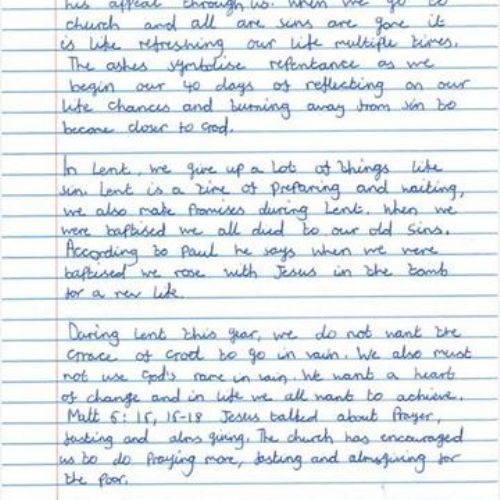 his appeal through us. When we go to
church and all are sins are gone it
is like refreshing our life multiple times.
The ashes symbolise repentance as we
begin our 40 days of reflecting on our
life chances and turning away from sin to
become closer to God.
In Lent, we give up a lot of things like
sin. Lent is a time of preparing and waiting,
we also make promises during Lent. When we
were baptised we all died to our old sins.
According to Paul he says when we were
baptised we rose with Jesus in the tomb
for a new life.
During Lent this year, we do not want the
Grace of God to go in vain. We also must
not use God's name in vain. We want a heart
of change and in life we all want to achieve.
Matt 6: 1-6, 16-18 Jesus talked about Prayer,
fasting and alms giving. The church has encouraged
us to do Praying more, fasting and almsgiving for
the poor.